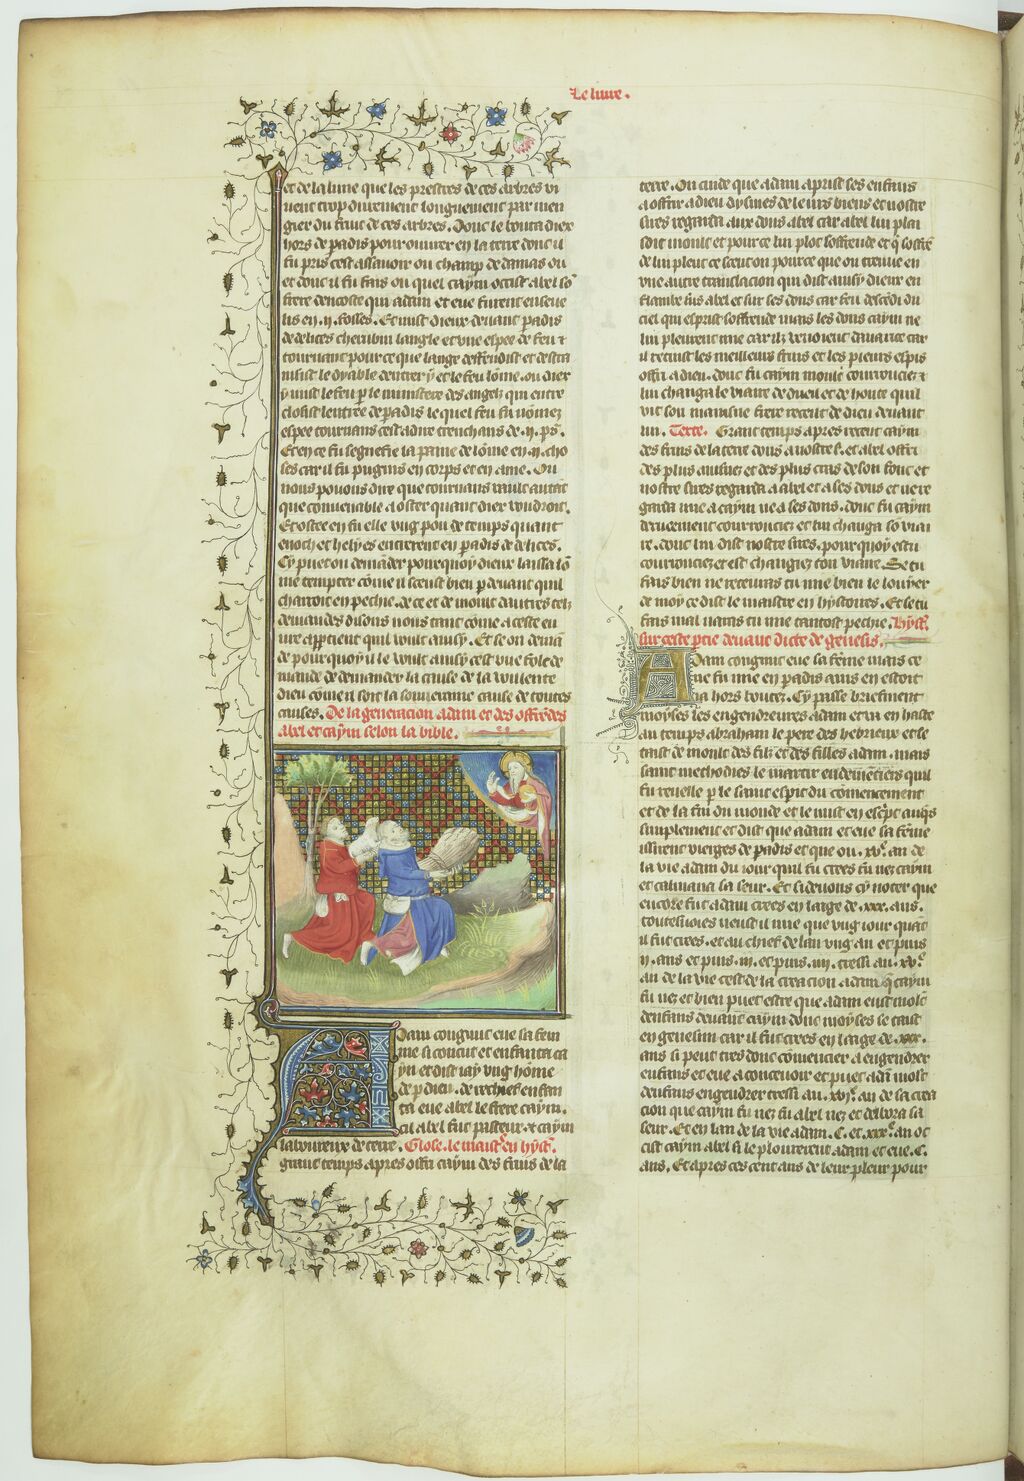 Le liure.
et de la lune que les prestres de ces arbres vi
uent trop durement longuement par men
gier du fruit de ces arbres. Donc le bouta dieu
hors de padis pour ouurer en la terre dont il
fu pris cest assauoir ou champ de damas ou
et dont il fu fais ou quel caym occist abel so
frere dencoste qui adam et eue furent enseue
lis en .ii. fosses. Et mist dieux deuant padis
de delices cherubin langle et vne espee de feu
tournant pour ce que lange deffendist et
le dyable dentrer y et le feu lome. ou dieu
y mist le feu p le ministere des angelz qui entre
closist lentree de padis le quel feu fu nomez
espee tournans cest adire trenchans de .ii. ps.
Et en ce fu segnefie la paine de lome en .ii. cho
ses car il fu pugnis en corps et en ame. Ou
nous pouons dire que tournans vault autat
que conuenable a oster quant dieu voudroit.
Et ostee en fu elle vng pou de temps quant
enoch et helyes entrerent en padis de delices.
Cy puet on demader pourquoy dieux laissa lo
me tempter come il sceust bien p deuant quil
charroit en pechie. de ce et de moult dautres telz
demandes disons nous tant come a ceste eu
ure apptient quil voult ainsy. Et se on dema
de pourquoy il le voult ainsy cest vne fole de
mande de demander la cause de la voulente
dieu come il soit la souueraine cause de toutes
causes. De la generacion adam et des offredes
abel et caym selon la bible.
Adam congnut eue sa fem
me si conut et enfanta ca
yn et dist iay vng home
de p dieu. de rechief enfan
ta eue abel le frere caym.
cil abel fut pasteur et caym
laboureux de terre. Glose. le maist en hyst.
grant temps apres offri caym des fruis de la
terre. On cuide que adam aprist ses enfans
a offrir a dieu dysmes de leurs biens et nostre
sires regarda aux dons abel car abel lui plai
soit moult et pour ce lui plot soffrende et q soffre
de lui pleut ce scet on pour ce que on treuue en
vne autre translacion qui dist ainsy dieux en
flambe sus abel et sur ses dons car feu descedi du
ciel qui esprist soffrende mais les dons caym ne
lui pleurent mie car ilz venoient dauarice car
il retint les meilleurs fruis et les pieurs espis
offri a dieu. donc fu caym moult courrouciez
lui changa le viaire de dueil et de honte quil
vit son maisne frere receut de dieu deuant
lui. Texte. Grant temps apres receut caym
des fruis de la terre dons a nostre s. et abel offri
des plus ainsnez et des plus cras de son fouc et
nostre sires regarda a abel et a ses dons et ne re
garda mie a caym ne a ses dons. donc fu caym
durement courrouciez et lui changa so viai
re. donc lui dist nostre sires. pourquoy es tu
courrouciez et est changiez ton viaire. Se tu
fais bien ne receuras tu mie bien le louyer
de moy ce dist le maistre en hystoires. Et se tu
fais mal naras tu mie tantost pechie. hyst.
sur ceste ptie deuant dicte de genesis.
Adam congnut eue sa feme mais ce
ne fu mie en padis ains en estoit
ia hors boutez. Cy passe briefment
moyses les engendreures adam et va en haste
au temps abraham le pere des hebrieux et se
taist de moult des filz et des filles adam. mais
saint methodies le martir endementiers quil
fu
reuelle p le saint espit du comencement
et de la fin du monde et le mist en escpt auqs
simplement et dist que adam et eue sa feme
issirent vierges de padis et que ou .xv. an de
la vie adam du iour quil fu crees fu nez caym
et calmana sa seur. Et si deuons cy noter que
encore fut adam crees en laage de .xxx. ans.
toutesuoies neust il mie que vng iour quat
il fut crees. et au chief de lan vng an et puis
.ii. ans et puis .iii. et puis .iiii. tressi au .xv.
an de la vie cest de la creacion adam q caym
fu nez et bien puet estre que adam eust molt
denfans deuant caym dont moyses se taist
en genesim car il fut crees en laage de .xxx.
ans si peut tres donc comencier a engendrer
enfans et eue a conceuoir et puet ada molt
denfans engendrer tressi au .xvi. an de sa crea
cion que caym fu nez fu abel nez et delbora sa
seur. Et en lan de la vie adam .C. et .xxx. an oc
cist caym abel si le plourerent adam et eue .C.
ans. Et apres ces cent ans de leur pleur pour